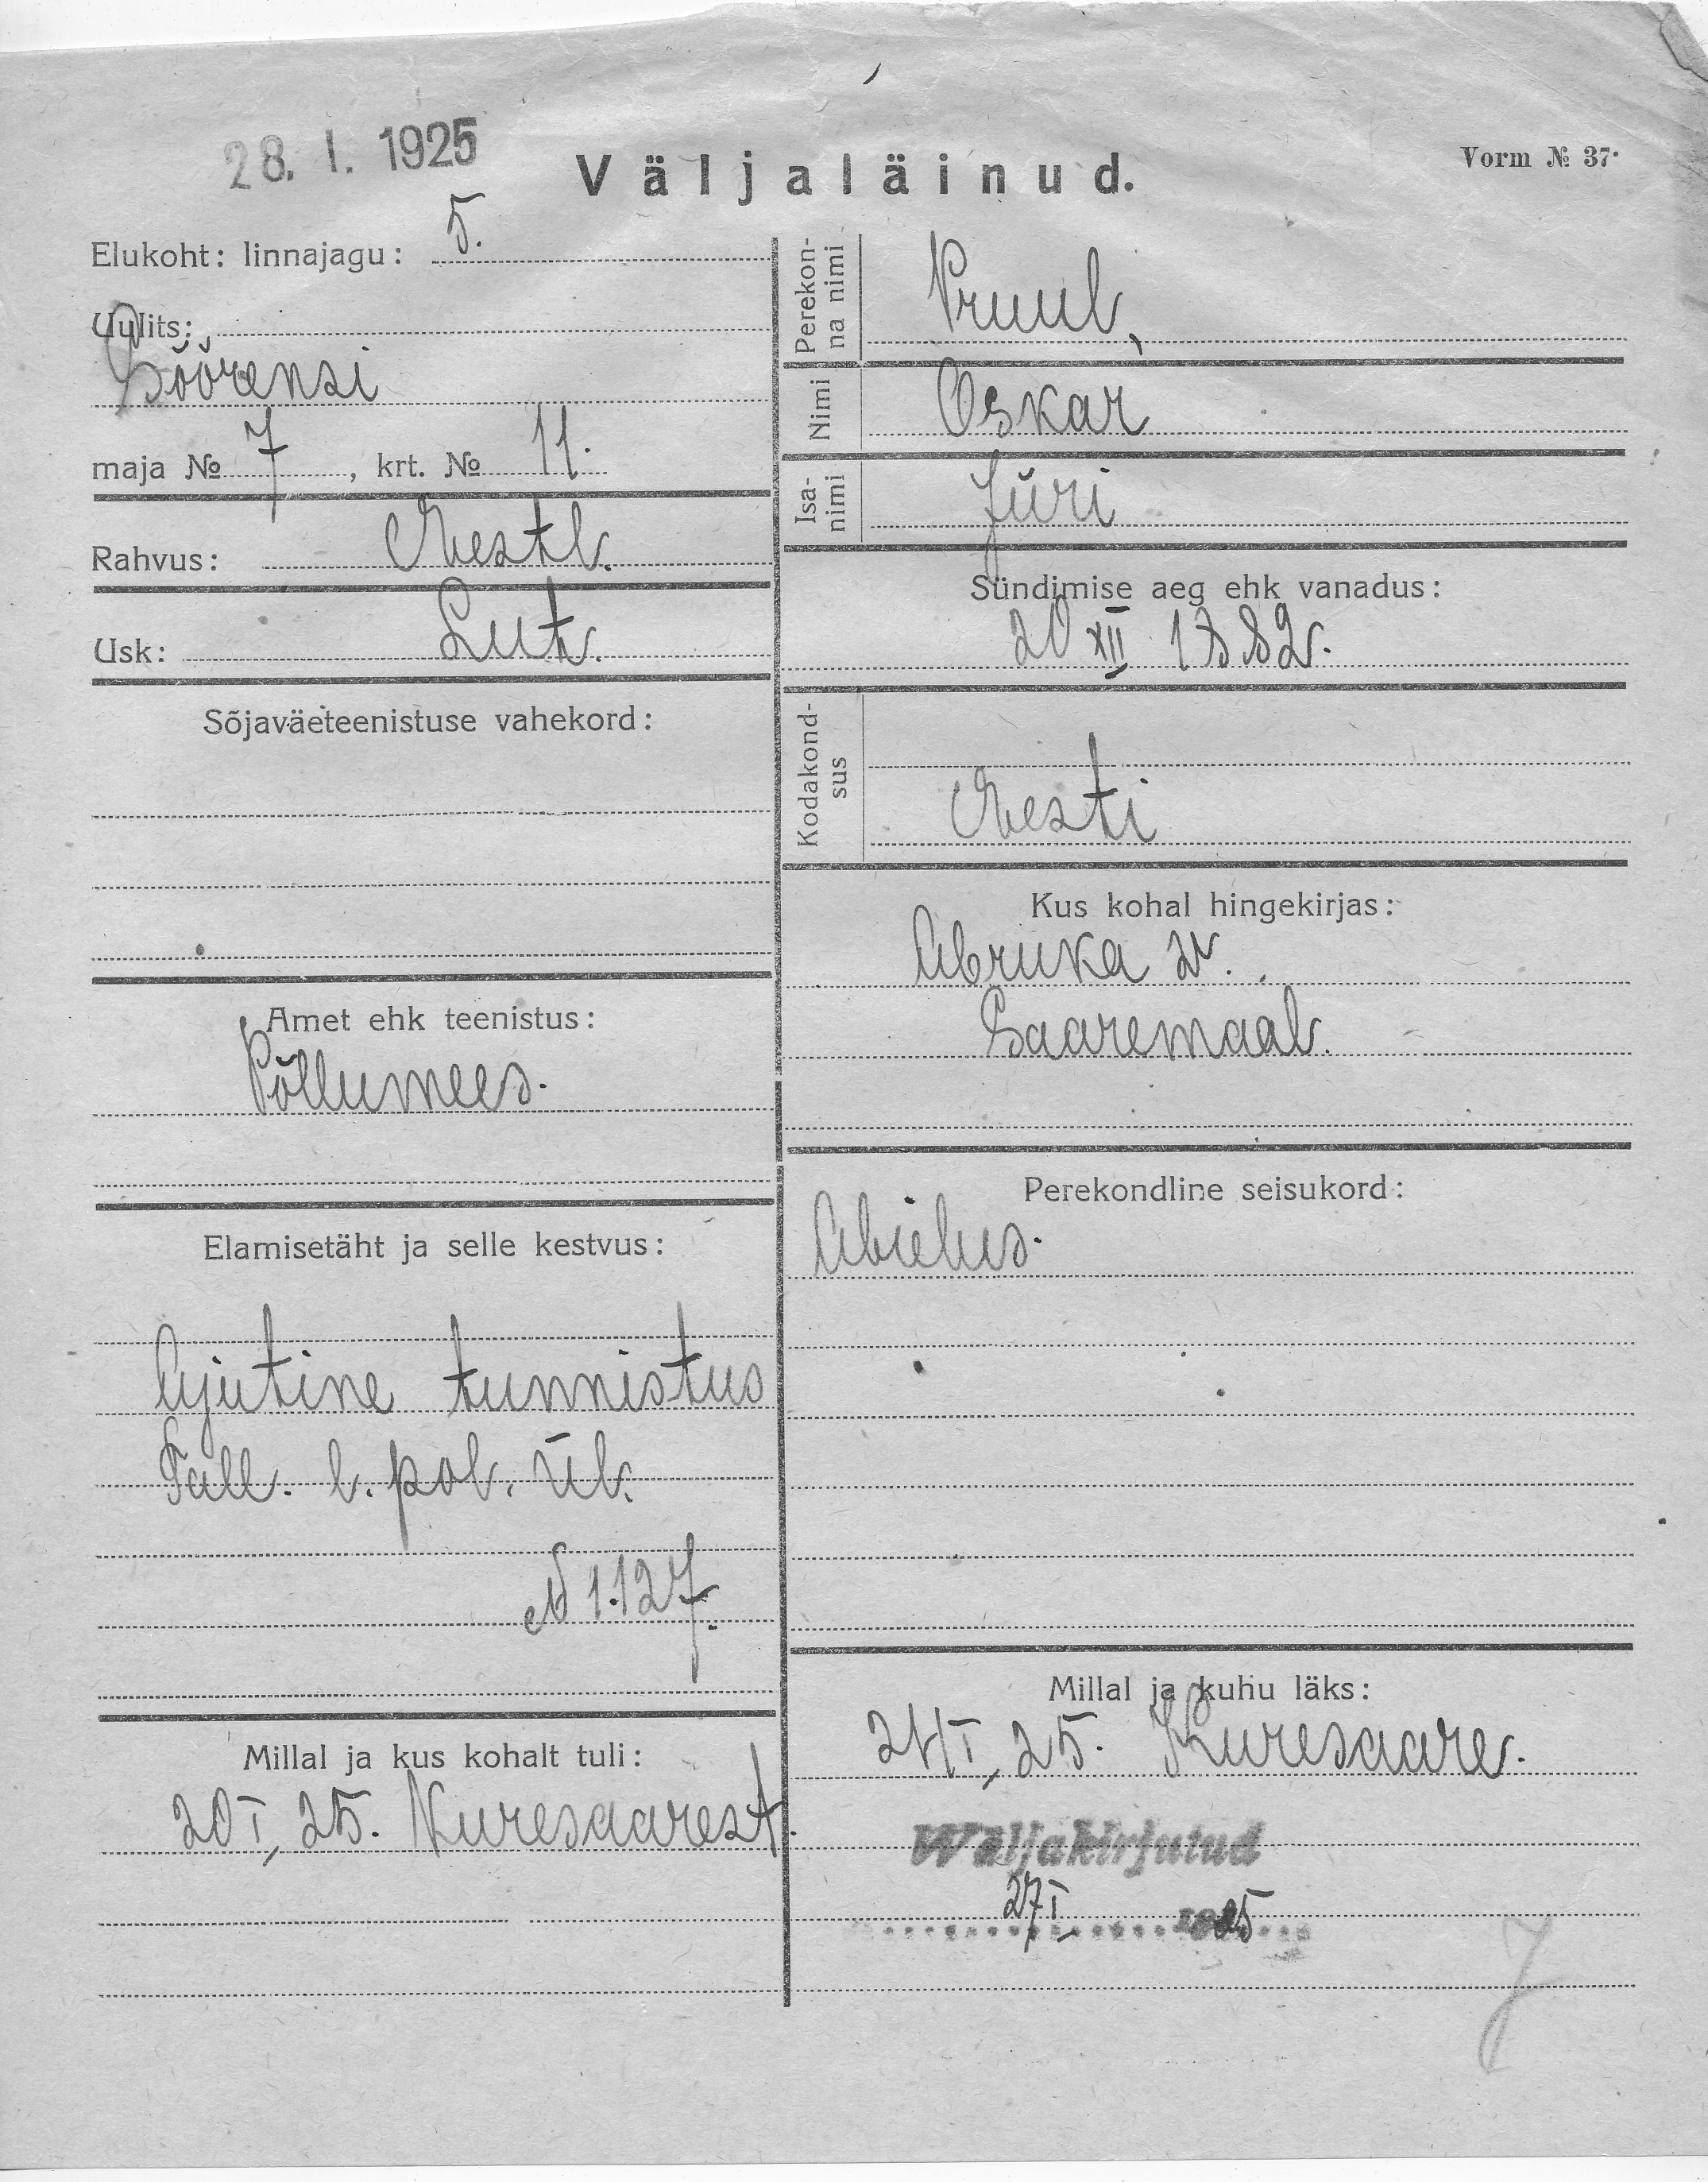 28. I. 1925
Väljaläinud.
Vorm № 37.
Elukoht: linnajagu: 5.
Uulits:
Söörensi
maja № 7, krt. № 11.
Rahvus: Eestl.
Usk: Lut.
Sõjaväeteenistuse vahekord:
Amet ehk teenistus:
Põllumees.
Elamisetäht ja selle kestvus:
Ajutine tunnistus
Tall. l. pol. ül.
№ 1127.
Millal ja kus kohalt tuli:
20 I, 25. Kuresaarest.
Perekonna nimi
Pruul,
Nimi
Oskar
Isanimi
Jüri
Sündimise aeg ehk vanadus:
20 XII 1882.
Kodakondsus
Eesti
Kus kohal hingekirjas:
Abruka v.
Saaremaal.
Perekondline seisukord:
Abielus.
Millal ja kuhu läks:
24 I, 25. Kuresaare.
Wäljakirjutud
27 I 1925
7